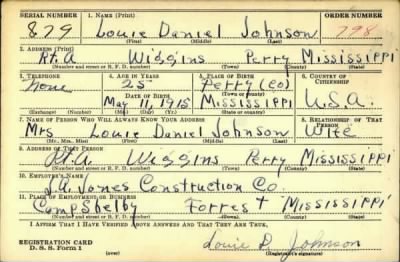 SERIAL NUMBER 1. NAME (Print) ORDER NUMBER
879 Louie Daniel Johnson 798
(First) (Middle) (Last)
2. ADDRESS (Print)
Rt. A Wiggins Perry Mississippi
(Number and street or R. F. D. number) (Town) (County) (State)
3. TELEPHONE 4. AGE IN YEARS 5. PLACE OF BIRTH 6. COUNTRY OF CITIZENSHIP
none 25 Perry (co)
DATE OF BIRTH (Town or county)
May 11, 1915 Mississippi U.S.A.
(Exchange) (Number) (Mo.) (Day) (Yr.) (State or country)
7. NAME OF PERSON WHO WILL ALWAYS KNOW YOUR ADDRESS 8. RELATIONSHIP OF THAT PERSON
Mrs Louie Daniel Johnson Wife
(Mr., Mrs., Miss) (First) (Middle) (Last)
9. ADDRESS OF THAT PERSON
Rt. A Wiggins Perry Mississippi
(Number and street or R. F. D. number) (Town) (County) (State)
10. EMPLOYER'S NAME
J.A. Jones Construction Co.
11. PLACE OF EMPLOYMENT OR BUSINESS
Camp Shelby Forrest Mississippi
(Number and street or R. F. D. number) (Town) (County) (State)
I AFFIRM THAT I HAVE VERIFIED ABOVE ANSWERS AND THAT THEY ARE TRUE.
REGISTRATION CARD
D. S. S. Form 1 (over) Louie D Johnson
(Registrant's signature)